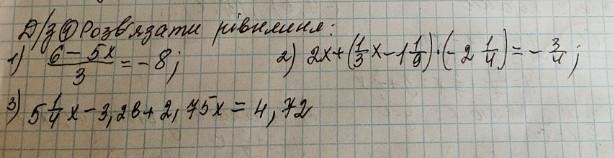 Д/з ① Розв'язати рівняння:
1) (6 - 5x)/3 = -8; 2) 2x + (1/3 x - 1 1/9) · (-2 1/4) = - 3/4;
3) 5 1/4 x - 3,28 + 2,75x = 4,72